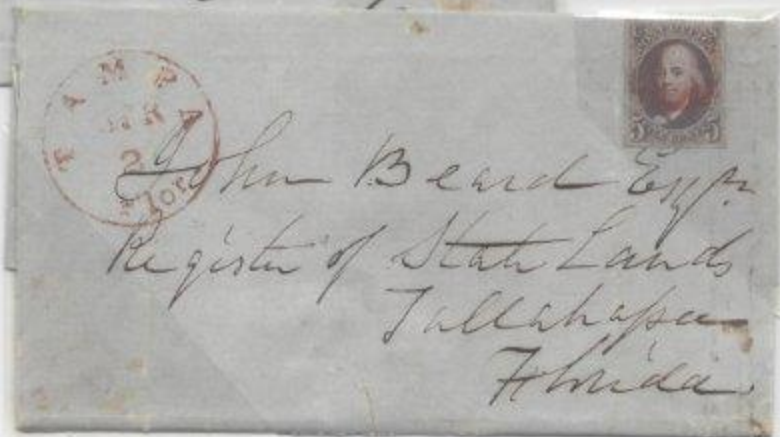 TAMPA
MAR
2
Flor.
5 5
John Beard Esqr.
Register of State Lands
Tallahassee
Florida.